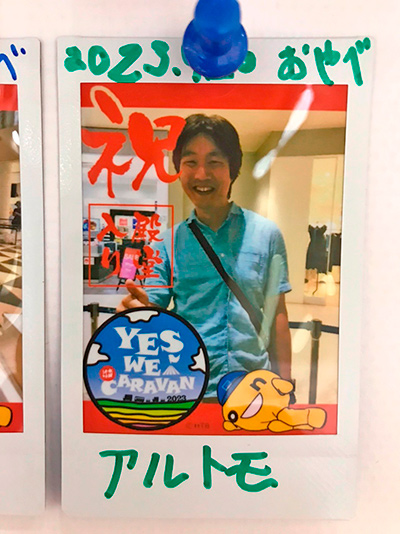 2023. おやべ
祝
殿堂
入り
YES
WE
CARAVAN
2023
©HTB
アルトモ